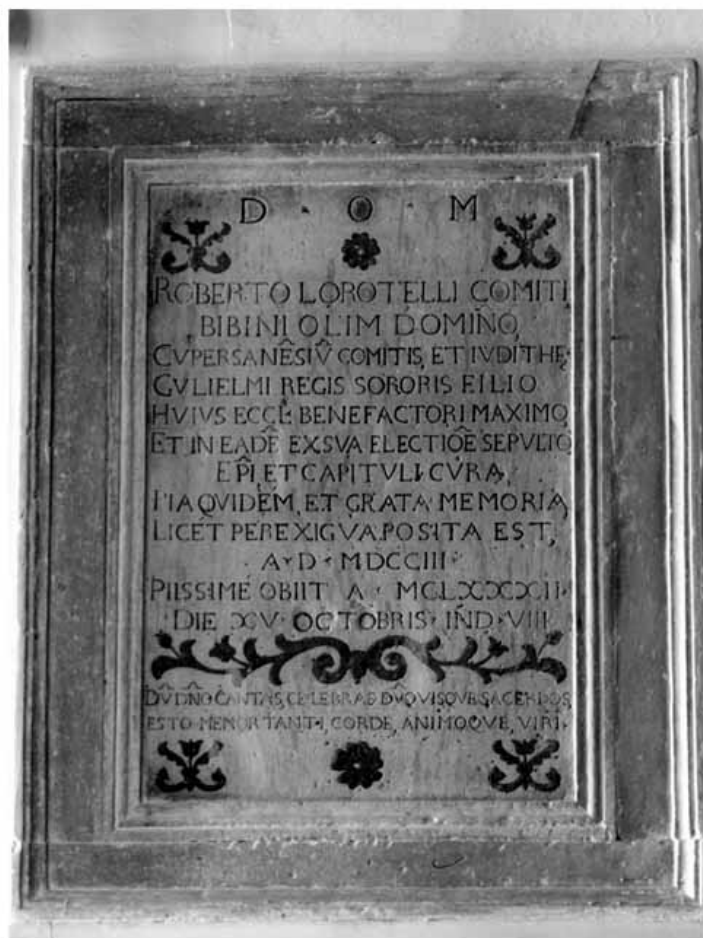 D · O · M
ROBERTO LOROTELLI COMITI,
BIBINI OLIM DOMINO,
CVPERSANÊSIV̂ COMITIS, ET IVDITHĘ·
GVLIELMI REGIS SORORIS FILIO
HVIVS ECCL̂E BENEFACTORI MAXIMO,
ET IN EADÊ EXSVA ELECTIOÊ SEPVLTO,
EP̂I, ET CAPITVLI CVRA,
PIA QVIDEM, ET GRATA MEMORIA,
LICET PEREXIGVA POSITA EST,
A·D·MDCCIII·
PIISSIME OBIIT A · MCLXXXXII·
DIE XV· OCTOBRIS· IND·VIII
DV̂ DN̂O CANTAS, CELEBRAS DV̂ QVISQVE SACERDOS,
ESTO MEMOR TANTI, CORDE, ANIMOQVE, VIRI·